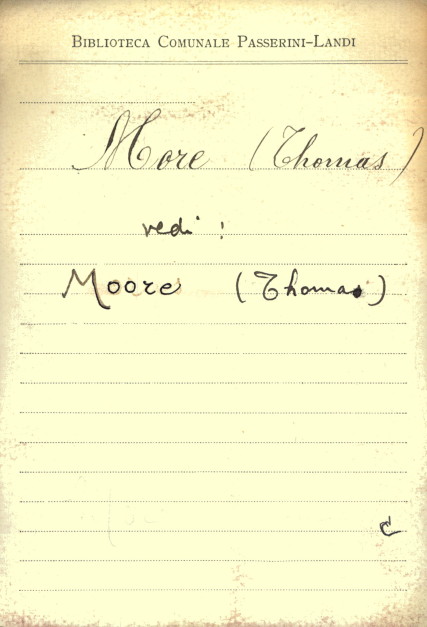 Biblioteca Comunale Passerini-Landi
More (Thomas)
vedi:
Moore (Thomas)
C